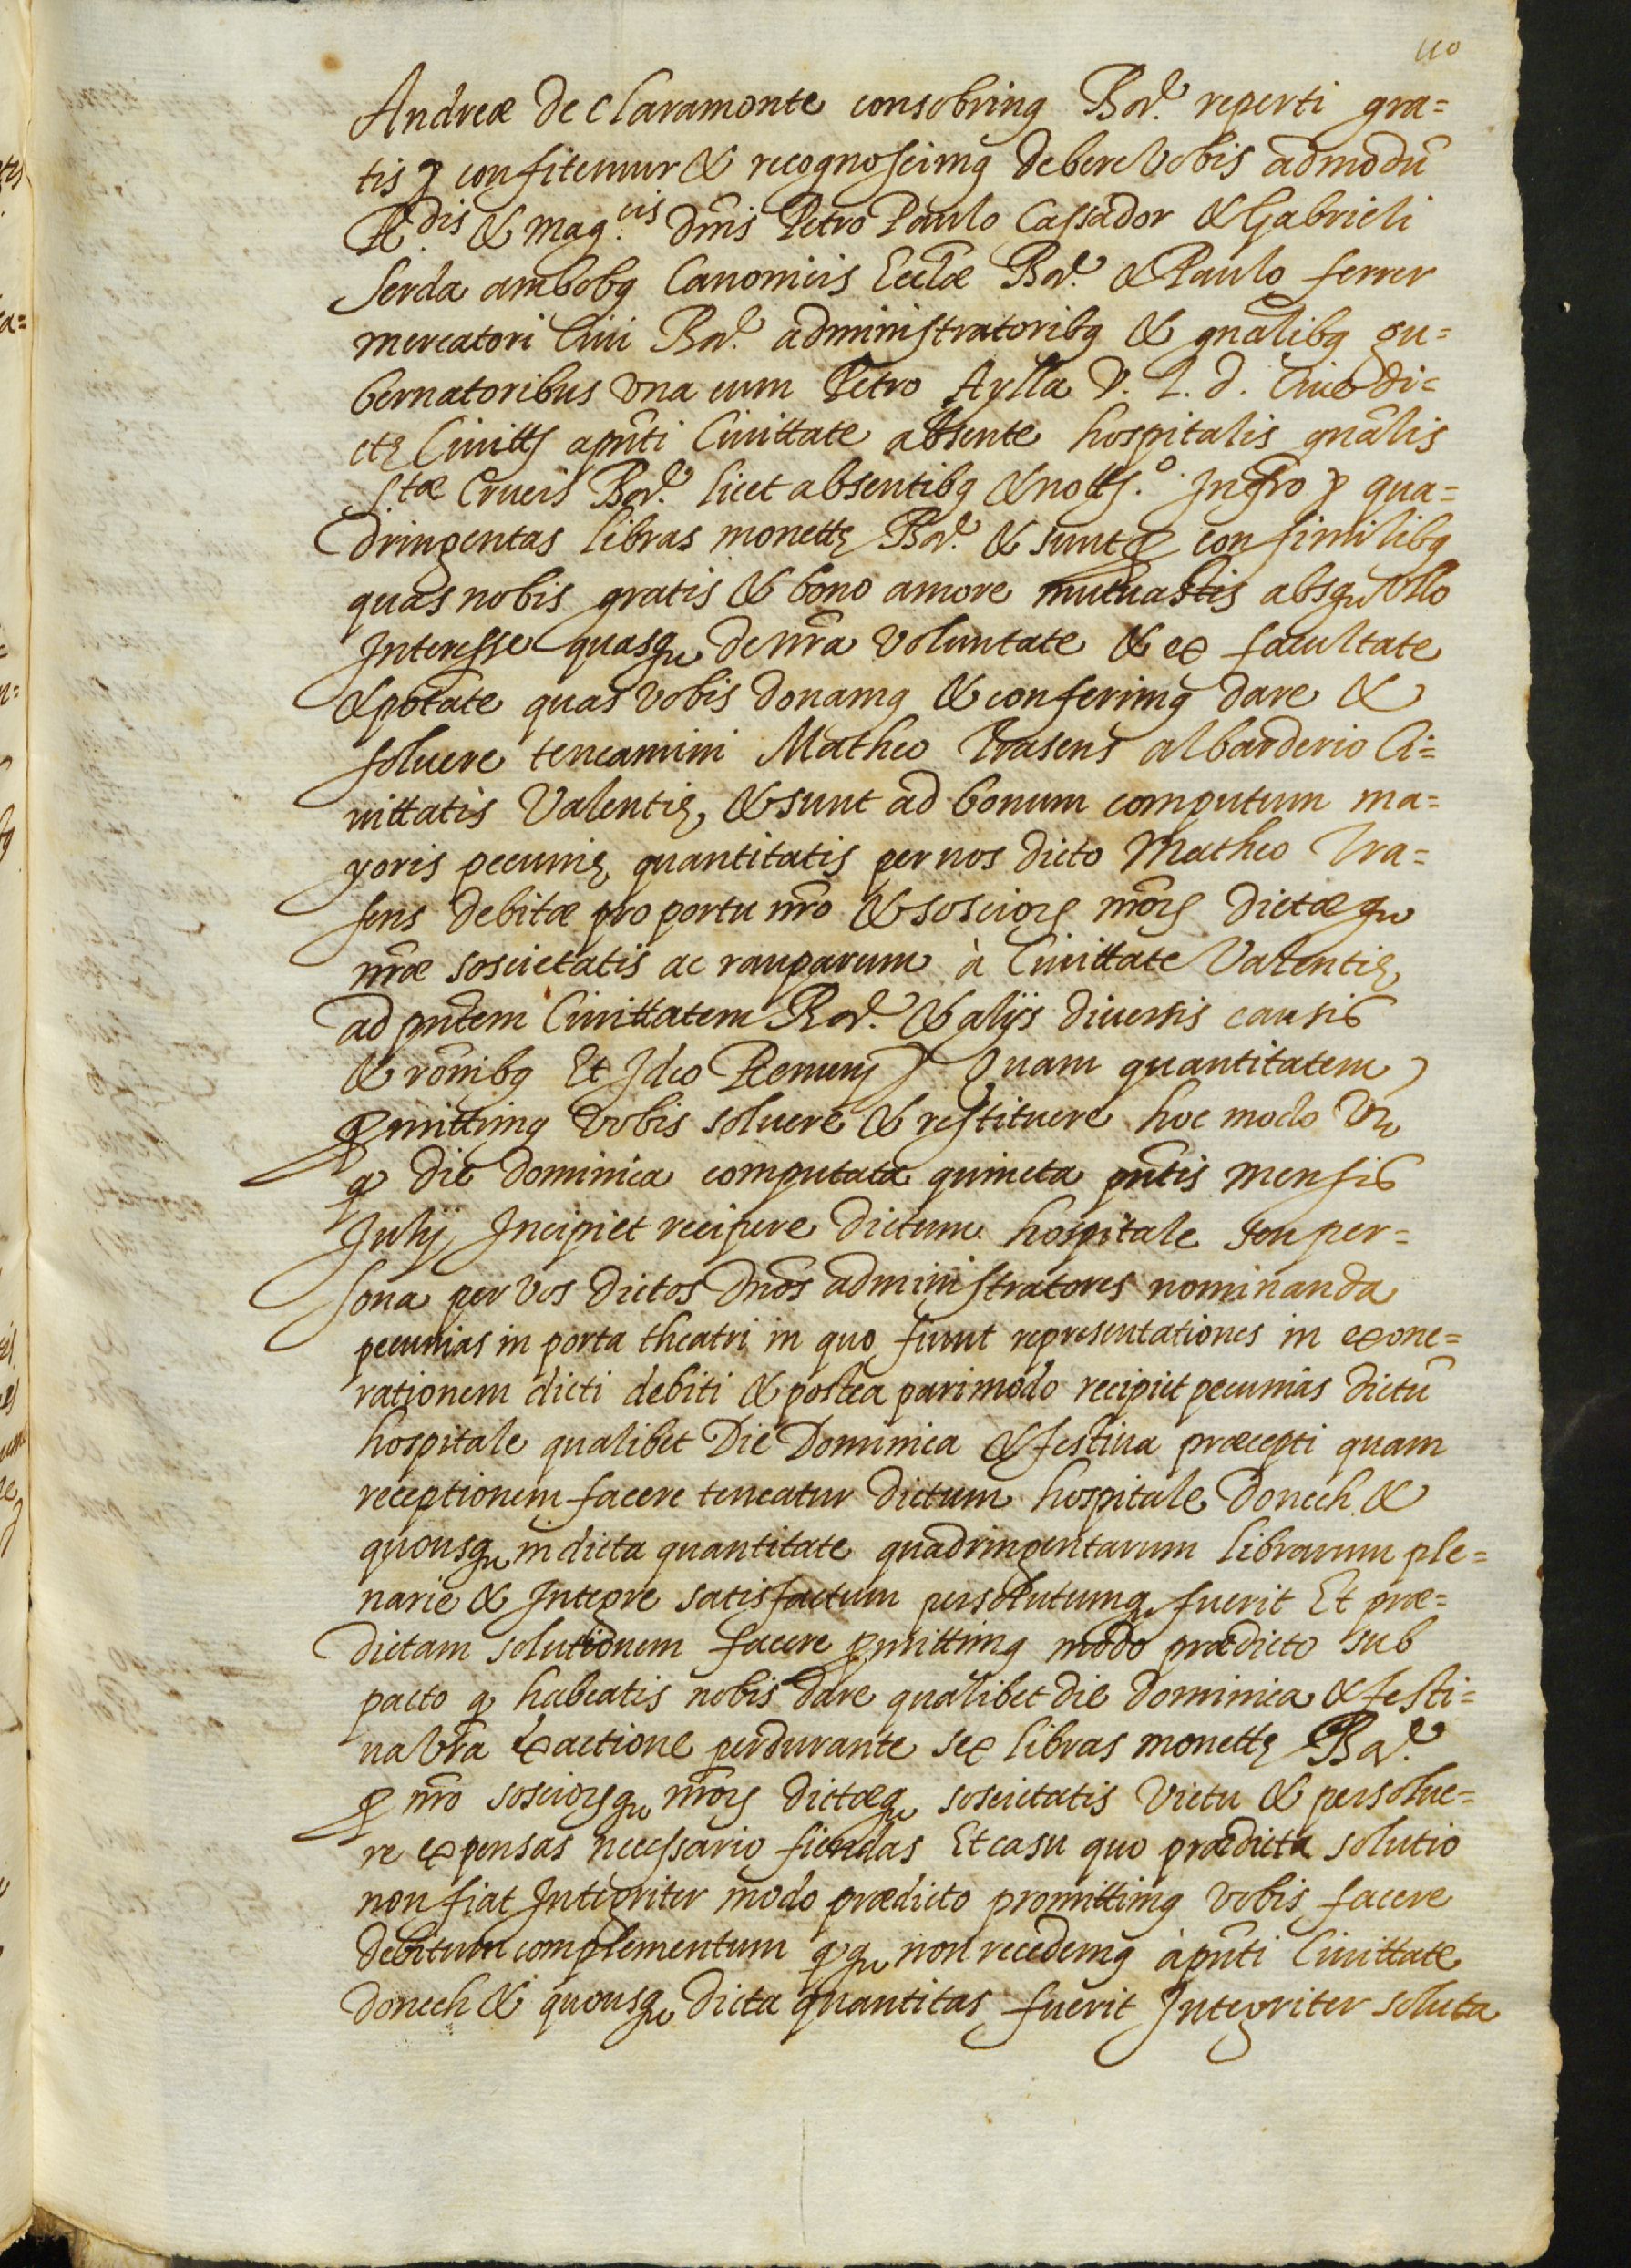 110
Andreæ de Claramonte consobrinꝰ Bar.ᵉ reperti gra=
tis ꝛ confitemur & recognoscimꝰ debere vobis admodũ
R.dis & mag.cis dñis Petro Paulo Cassador & Gabrieli
Serda ambobꝰ Canonicis Ecclæ Bar.ᵉ & Paulo ferrer
mercatori Ciui Bar.ᵉ administratoribꝰ & gñalibꝰ gu=
bernatoribus vna cum Petro Aylla V. J. d. Ciue di=
ctę Ciuittꝭ apñti Ciuittate absente hospitalis gnãlis
Stæ Crucis Bar.ᵉ licet absentibꝰ & nottꝭ.º Infro ꝛ qua=
dringentas libras monettę Bar.ᵉ & sunt ꝓ consimilibꝰ
quas nobis gratis & bono amore mutuastis absqꝫ vllo
Interesse quasqꝫ de nr̃a voluntate & ex facultate
& põtate quas vobis donamꝰ & conferimꝰ dare &
soluere teneamini Matheo Trasens albarderio Ci=
uittatis Valentię, & sunt ad bonum computum ma=
yoris pecunię quantitatis per nos dicto Matheo Tra=
sens debitæ pro portu nr̃o & sosciorꝭ nr̃orꝭ dictæqꝫ
nr̃æ soscietatis ac rauparum à Ciuittate Valentię
ad pñtem Ciuittatem Bar.ᵉ & alijs diuersis causis
& rõnibꝰ Et Ideo Renunꝭ ꝛ Quam quantitatem
ꝓmittimꝰ vobis soluere & restituere hoc modo Vꝫ
ꝙ die dominica computata quincta pñtis mensis
Julij Incipiet recipere dictum hospitale seu per=
sona per vos dictos Dños administratores nominanda
pecunias in porta theatri in quo fiunt representationes in exone=
rationem dicti debiti & postea parimodo recipiet pecunias dictũ
hospitale qualibet Die Dominica & festiua præcepti quam
receptionem facere teneatur dictum hospitale donech &
quousqꝫ in dicta quantitate quadringentarum librarum ple=
narie & Integre satisfactum persolutumqꝫ fuerit Et præ=
dictam solutionem facere ꝓmittimꝰ modo prædicto sub
pacto ꝙ habeatis nobis dare qualibet die dominica & festi=
ua vr̃a exactione perdurante sex libras monettę Bar.ᵉ
ꝓ nr̃o sosciorꝭqꝫ nr̃orꝭ dictæqꝫ soscietatis victu & persolue=
re expensas necessario fiendas Et casu quo prædicta solutio
non fiat Integriter modo prædicto promittimꝰ vobis facere
debitum complementum ꝙqꝫ non recedemꝰ à pñti Ciuittate
donech & quousqꝫ dicta quantitas fuerit Integriter soluta